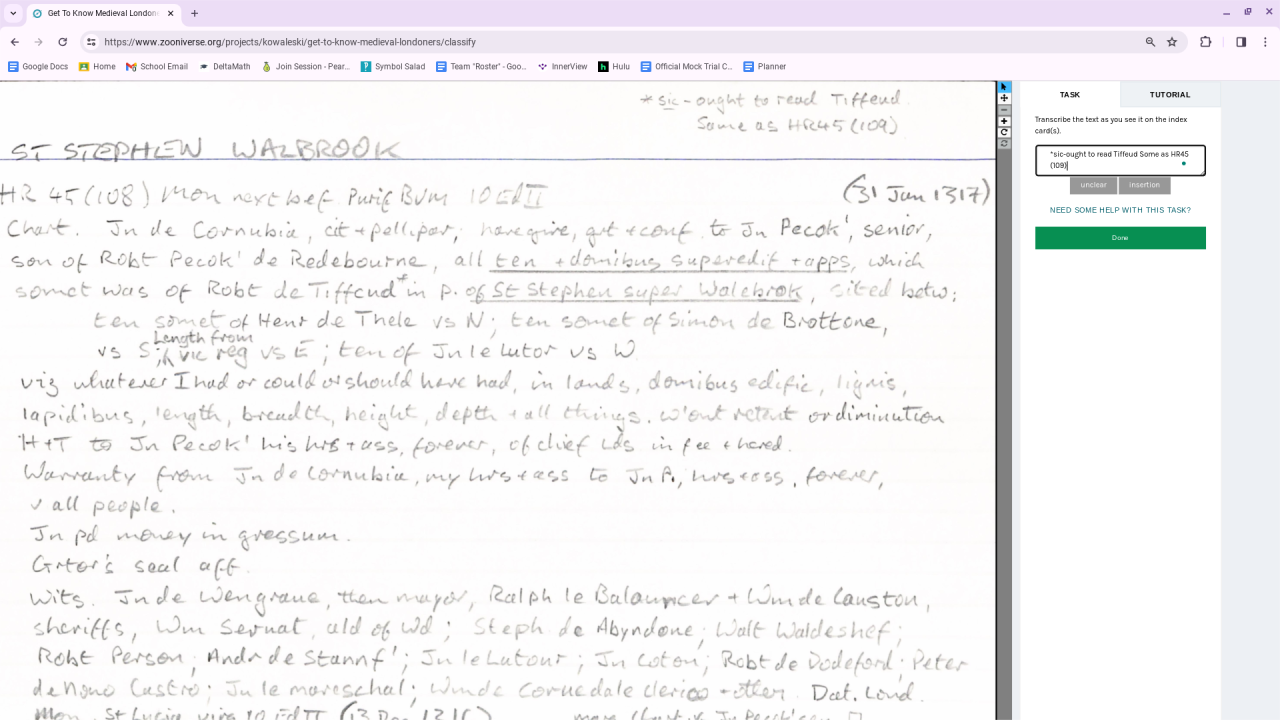 Get To Know Medieval London
https://www.zooniverse.org/projects/kowaleski/get-to-know-medieval-londoners/classify
Google Docs Home School Email DeltaMath Join Session - Pear... Symbol Salad Team "Roster" - Goo... InnerView Hulu Official Mock Trial C... Planner
* sic - ought to read Tiffeud
Same as HR45 (109)
ST STEPHEN WALBROOK
HR 45 (108) Mon next bef. Purif BVM 10 Ed II (31 Jan 1317)
Chart. Jn de Cornubia, cit + pellipar, have give, grt + conf. to Jn Pecok', senior,
son of Robt Pecok' de Redebourne, all ten + domibus superedif + apps, which
somet was of Robt de Tiffend* in p. of St Stephen super Walebrok, sited betw:
ten somet of Henr de Thele vs N; ten somet of Simon de Brottone,
Length from
vs S; vic reg vs E; ten of Jn le Lutor vs W
viz whatever I had or could or should have had, in lands, domibus edific, lignis,
lapidibus, length, breadth, height, depth + all things. w'out retent or diminution
H+T to Jn Pecok' his hrs + ass, forever, of chief lds in fee + hered.
Warranty from Jn de Cornubia, my hrs + ass to Jn P., hrs + ass, forever,
v all people.
Jn pd money in gressum.
Grtor's seal aff.
Wits. Jn de Wengrave, then mayor, Ralph le Balauncer + Wm de Causton,
sheriffs, Wm Servat, ald of Wd; Steph de Abyndone; Walt Waldeshef;
Robt Person; Andr de Stannf'; Jn le Lutour; Jn Coton; Robt de Dodeford; Peter
de Novo Castro; Jn le mareschal; Wm de Cornedale clerico + other. Dat. Lond.
Mon. St Lucie virg 10 Ed II (13 Dec 1316)
TASK TUTORIAL
Transcribe the text as you see it on the index
card(s).
*sic-ought to read Tiffeud Some as HR45
(109)
unclear insertion
NEED SOME HELP WITH THIS TASK?
Done